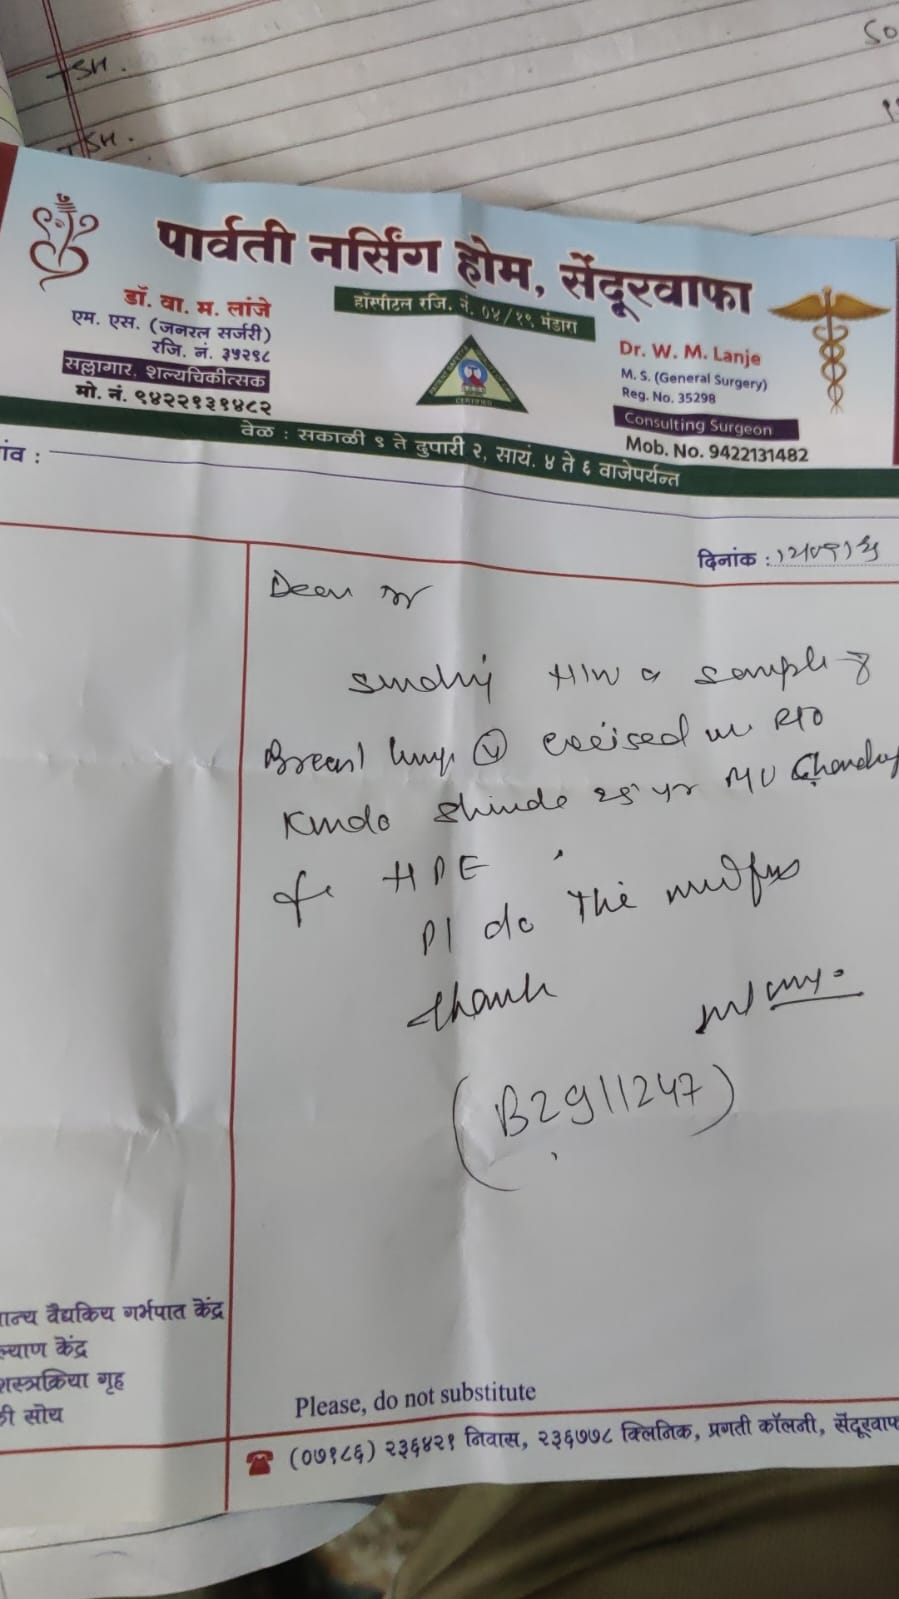 TSH.
TSH.
पार्वती नर्सिंग होम, सेंदूरवाफा
हॉस्पीटल रजि. नं. ०४/१९ भंडारा
डॉ. वा. म. लांजे
एम. एस. (जनरल सर्जरी)
रजि. नं. ३५२९८
सल्लागार, शल्यचिकीत्सक
मो. नं. ९४२२१३१४८२
Dr. W. M. Lanje
M. S. (General Surgery)
Reg. No. 35298
Consulting Surgeon
Mob. No. 9422131482
वेळ : सकाळी ९ ते दुपारी २, सायं. ४ ते ६ वाजेपर्यन्त
गांव :
दिनांक :
Dear
sending H/W a sample of
Breast lump excised in
shinde 25 yr
for HPE
Pl do the needful
thank
(B2911247)
मान्य वैद्यकिय गर्भपात केंद्र
कल्याण केंद्र
शस्त्रक्रिया गृह
सोय
Please, do not substitute
(०७१८६) २३६४२१ निवास, २३६७७८ क्लिनिक, प्रगती कॉलनी, सेंदूरवाफा